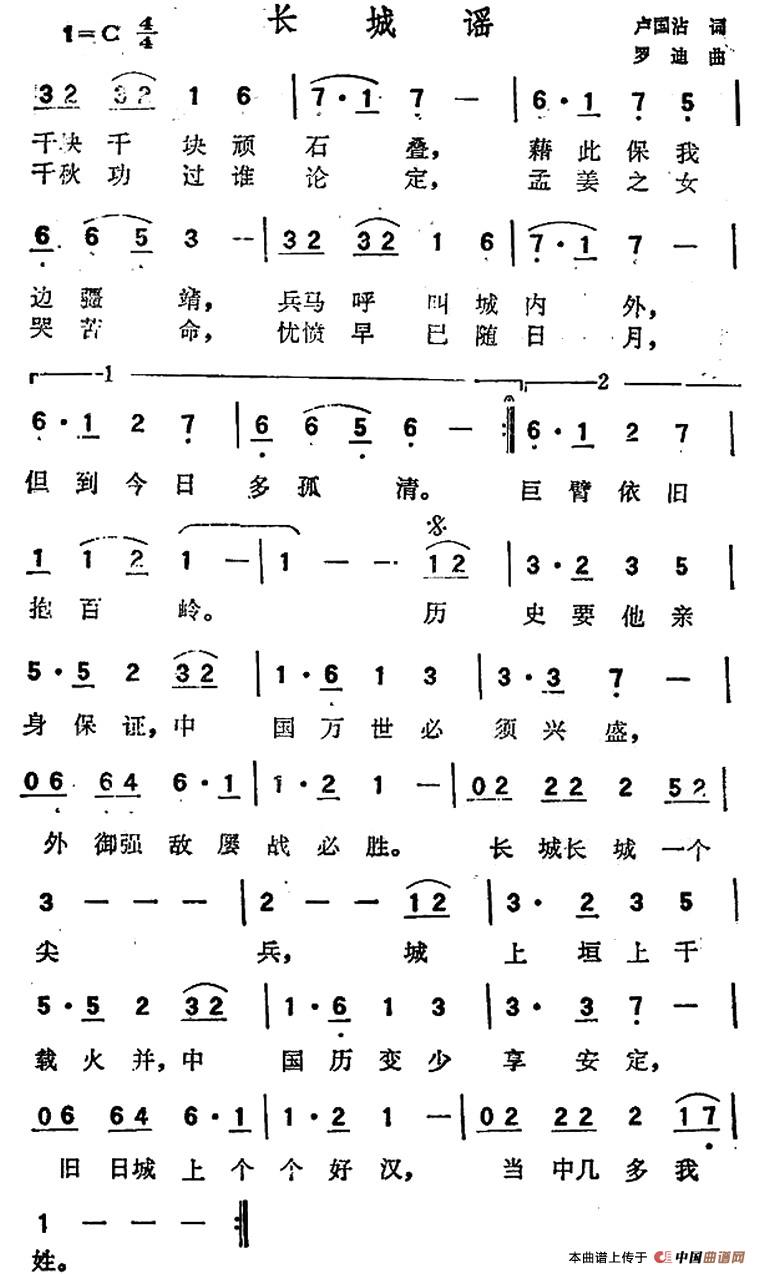 长城谣
1=C 4/4
卢国沾 词
罗迪 曲
32 32 1 6 | 7·1 7 — | 6·1 7 5 |
千块千块顽石叠，藉此保我
千秋功过谁论定，孟姜之女
6 6 5 3 -- | 32 32 1 6 | 7·1 7 — |
边疆靖，兵马呼叫城内外，
哭苦命，忧愤早已随日月，
1 2
6·1 2 7 | 6 6 5 6 — :‖ 6·1 2 7 |
但到今日多孤清。巨臂依旧
1 1 2 1 — | 1 — — 12 | 3·2 3 5 |
抱百岭。历史要他亲
5·5 2 32 | 1·6 1 3 | 3·3 7 — |
身保证，中国万世必须兴盛，
06 64 6·1 | 1·2 1 — | 02 22 2 52 |
外御强敌屡战必胜。长城长城一个
3 — — — | 2 — — 12 | 3· 2 3 5 |
尖兵，城上垣上千
5·5 2 32 | 1·6 1 3 | 3· 3 7 — |
载火并，中国历变少享安定，
06 64 6·1 | 1·2 1 — | 02 22 2 17 |
旧日城上个个好汉，当中几多我
1 — — — :‖
姓。
本曲谱上传于 中国曲谱网